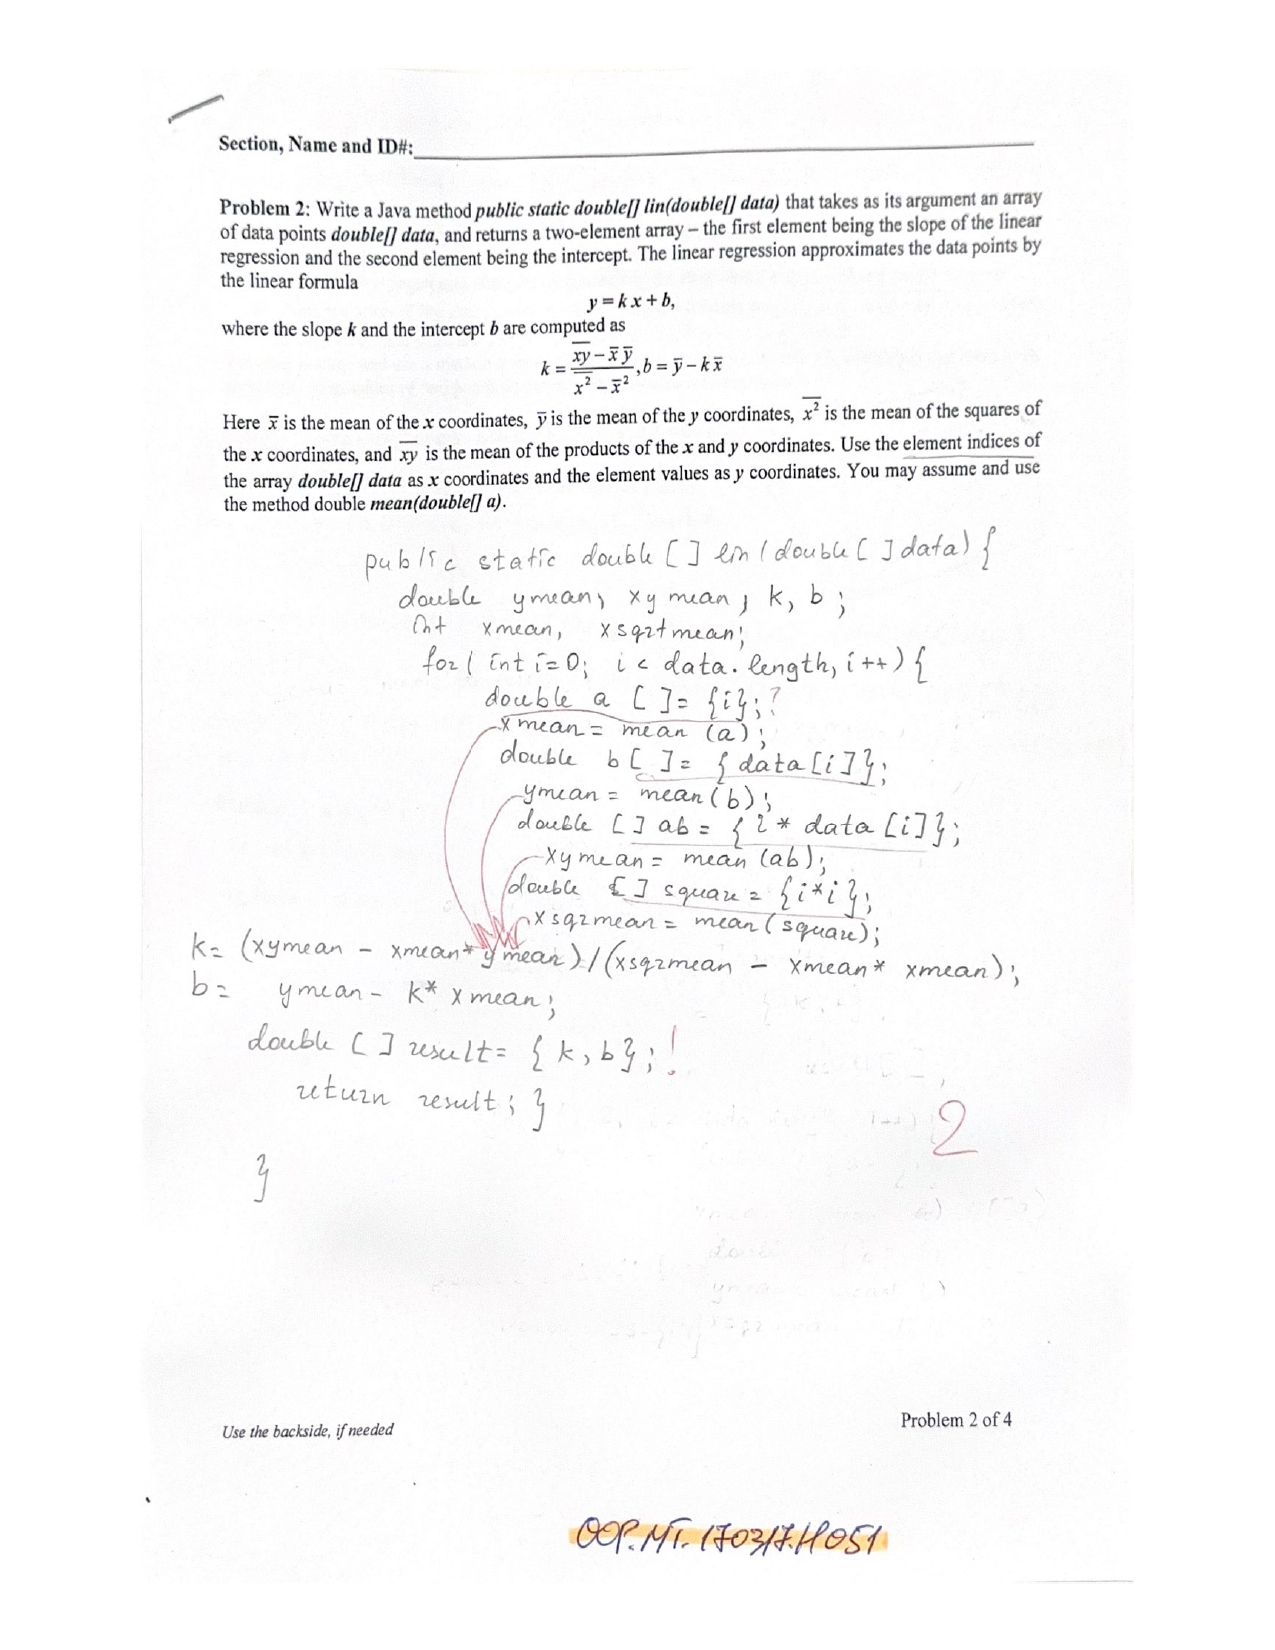 Section, Name and ID#:
Problem 2: Write a Java method public static double[] lin(double[] data) that takes as its argument an array
of data points double[] data, and returns a two-element array – the first element being the slope of the linear
regression and the second element being the intercept. The linear regression approximates the data points by
the linear formula
y = k x + b,
where the slope k and the intercept b are computed as
k = (x̅y̅ − x̄ ȳ) / (x̅²̅ − x̄²), b = ȳ − k x̄
Here x̄ is the mean of the x coordinates, ȳ is the mean of the y coordinates, x̅²̅ is the mean of the squares of
the x coordinates, and x̅y̅ is the mean of the products of the x and y coordinates. Use the element indices of
the array double[] data as x coordinates and the element values as y coordinates. You may assume and use
the method double mean(double[] a).
public static double [ ] lin ( double [ ] data) {
double ymean, xymean, k, b ;
int xmean, xsqrtmean;
for ( int i=0; i < data.length, i++) {
double a [ ]= {i}; ?
xmean = mean (a);
double b[ ]= { data[i]};
ymean = mean(b);
double [ ] ab = { i * data [i]};
xymean = mean (ab);
double [ ] square = {i*i};
xsqrmean = mean(square);
k= (xymean - xmean* ymean) / (xsqrmean - xmean* xmean);
b= ymean - k* xmean;
double [ ] result= { k, b}; !
return result; }
2
}
Use the backside, if needed
Problem 2 of 4
OOP.MT.170317.H051